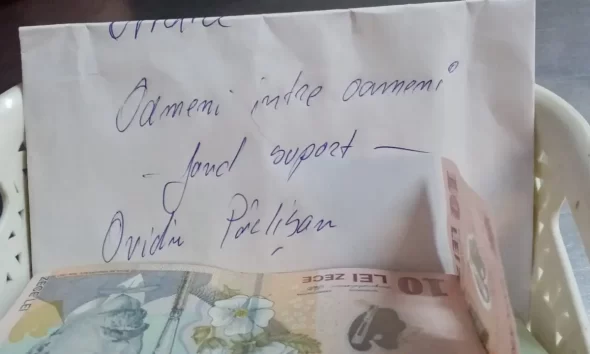 Oameni între oameni
- fond suport -
Ovidiu Pâclișan
10 LEI
10 LEI ZECE